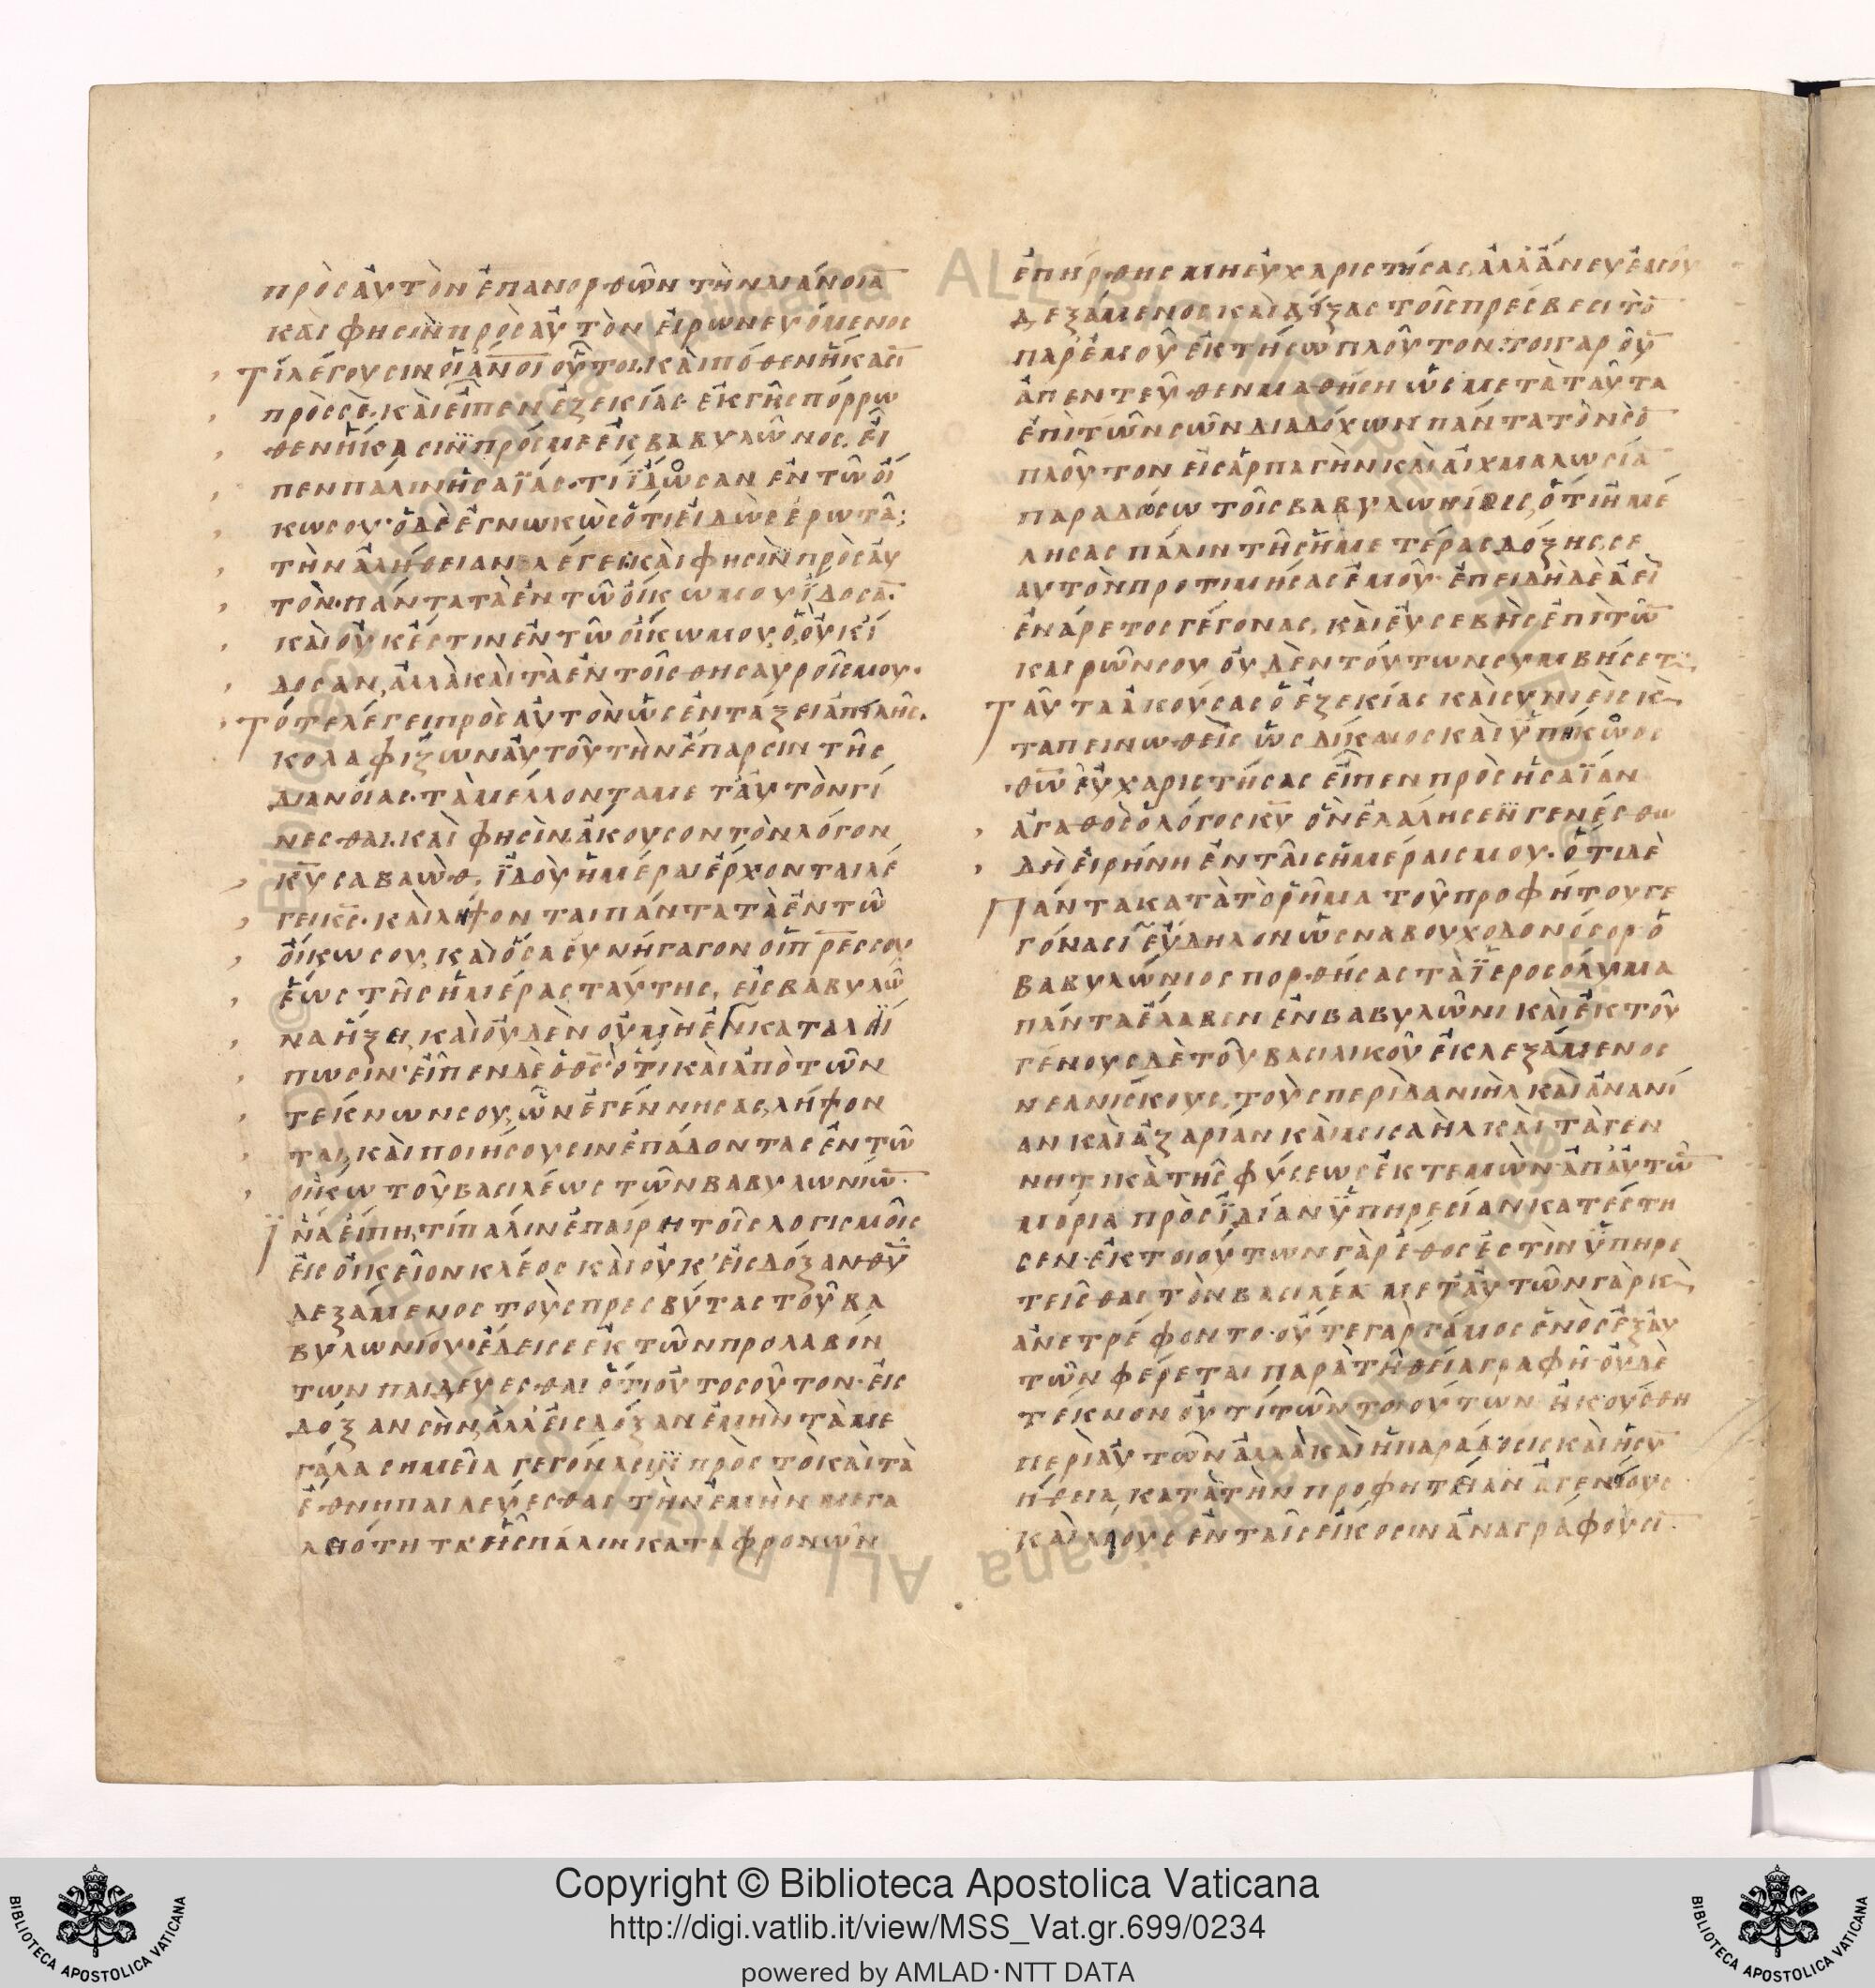 πρὸς αὐτὸν ἐπανορθῶν τὴν διάνοια̅
καί φησιν πρὸς αὐτὸν εἰρωνευόμενος
Τί λέγουσιν οἱ α̅ν̅ο̅ι̅ οὗτοι, καὶ πόθεν ἥκασι̅
πρὸς σέ, καὶ εἶπεν ἐζεκίας ἐκ γῆς πόρρω
θεν ἥκασιν πρός με ἐκ βαβυλῶνος. εἶ
πεν πάλιν ἡσαΐας· τί ἴδωσαν ἐν τῶ οἴ
κω σου· ὁ δὲ ἐγνωκὼς ὅτι εἰδὼς ἐρωτᾶ;
τὴν ἀλήθειαν λέγει· καὶ φησὶν πρὸς αὐ
τόν· πάντα τὰ ἐν τῶ οἴκω μου ἴδοσα̅·
καὶ οὐκ ἔστιν ἐν τῶ οἴκω μου, ὃ οὐκ ἴ
δοσαν, ἀλλὰ καὶ τὰ ἐν τοῖς θησαυροῖς μου·
Τότε λέγει πρὸς αὐτὸν ὡς ἐν τάξει ἀπειλῆς.
κολαφίζων αὐτοῦ τὴν ἔπαρσιν τῆς
διανοίας· τὰ μέλλοντα μετ' αὐτὸν γί
νεσθαι. καὶ φησὶν ἄκουσον τὸν λόγον
κ̅υ̅ σαβαώθ, ἰδοὺ ἡμέραι ἔρχονται λέ
γει κ̅ς̅· καὶ λήψονται πάντα τὰ ἐν τῶ
οἴκω σου, καὶ ὅσα συνήγαγον οἱ π̅ρ̅ε̅ς̅ σου
ἕως τῆς ἡμέρας ταύτης, εἰς βαβυλῶ
να ἥξει, καὶ οὐδὲν οὐ μὴ ἐνκαταλεί
πωσιν· εἶπεν δὲ ὁ θ̅ς̅ ὅτι καὶ ἀπὸ τῶν
τέκνων σου, ὧν ἐγέννησας, λήψον
ται, καὶ ποιήσουσιν σπάδοντας ἐν τῶ
οἴκω τοῦ βασιλέως τῶν βαβυλωνίω̅·
Ἵνα εἴπη, τί πάλιν ἐπαίρη τοῖς λογισμοῖς
εἰς οἰκεῖον κλέος καὶ οὐκ' εἰς δόξαν θ̅υ̅
δεξάμενος τοὺς πρεσβύτας τοῦ βα
βυλωνίου· ἔδει σε ἐκ τῶν προλαβόν
των παιδεύεσθαι ὅτι οὐ τοσοῦτον· εἰς
δόξαν σὴν, ἀλλ' εἰς δόξαν ἐμὴν τὰ με
γάλα σημεῖα γεγόνασιν πρὸς τὸ καὶ τὰ
ἔθνη παιδεύεσθαι τὴν ἐμὴν μεγα
λειότητα· εἰ ς πάλιν καταφρονῶν
ἐπήρθης μὴ εὐχαριστήσας, ἀλλ' ἄνευ ἐμοῦ
δεξάμενος καὶ δείξας τοῖς πρέσβεσι τὸ̅
παρ' ἐμοῦ ἐκ τήσω πλοῦτον. τοιγαροῦ̅
ἀπεντεῦθεν μαθήση ὡς μετὰ ταῦτα
ἐπὶ τῶν σῶν διαδόχων πάντα τὸν σὸ̅
πλοῦτον εἰς ἁρπαγὴν καὶ αἰχμαλωσία̅
παραδώσω τοῖς βαβυλωνίοις, ὅτι ἠμέ
λησας πάλιν τῆς ἡμετέρας δόξης, σε
αυτὸν προτιμήσας ἐμοῦ· ἐπειδὴ δὲ ἀεὶ
ἐνάρετος γέγονας, καὶ εὐσεβὴς ἐπὶ τῶ̅
καιρῶν σου, οὐδὲν τούτων συμβήσεται,
Ταῦτα ἀκούσας ὁ ἐζεκίας καὶ συνιεὶς κ(αὶ)
ταπεινωθεὶς ὡς δίκαιος καὶ ὑπήκωος
θ̅ω̅ εὐχαριστήσας εἶπεν πρὸς ἡσαΐαν
ἀγαθὸς ὁ λόγος κ̅υ̅ ὃν ἐλάλησεν γενέσθω
δὴ εἰρήνη ἐν ταῖς ἡμέραις μου. ὅτι δὲ
Πάντα κατὰ τὸ ῥῆμα τοῦ προφήτου γε
γόνασι εὔδηλον ὡς ναβουχοδονόσορ ὁ
βαβυλώνιος πορθήσας τὰ ἱεροσόλυμα
πάντα ἔλαβεν ἐν βαβυλῶνι καὶ ἐκ τοῦ
γένους δὲ τοῦ βασιλικοῦ ἐκλεξάμενος
νεανίσκους, τοὺς περὶ δανιὴλ καὶ ἀνανί
αν καὶ ἀζαρίαν καὶ μισαὴλ καὶ τὰ γεν
νητικὰ τῆς φύσεως ἐκτεμὼν ἀπ' αὐτῶ̅
μόρια πρὸς ἰδίαν ὑπηρεσίαν κατέστη
σεν· ἐκ τοιούτων γὰρ ἔθος ἐστὶν ὑπηρε
τεῖσθαι τὸν βασιλέα μετ' αὐτῶν γὰρ κ(αὶ)
ἀνετρέφοντο· οὔτε γὰρ γάμος ἑνὸς ἐξ αὐ
τῶν φέρεται παρὰ τῆ θεία γραφῆ οὐδὲ
τέκνον οὔτι τῶν τοιούτων ἠκούσθη
περὶ αὐτῶν ἀλλὰ καὶ ἡ παράδοσις καὶ ἡ συ̅
ήθεια κατὰ τὴν προφητείαν ἀγενείους
καὶ λείους ἐν ταῖς εἰκόσιν ἀναγράφουσι̅·
Copyright © Biblioteca Apostolica Vaticana
http://digi.vatlib.it/view/MSS_Vat.gr.699/0234
powered by AMLAD·NTT DATA
BIBLIOTECA APOSTOLICA VATICANA
BIBLIOTECA APOSTOLICA VATICANA